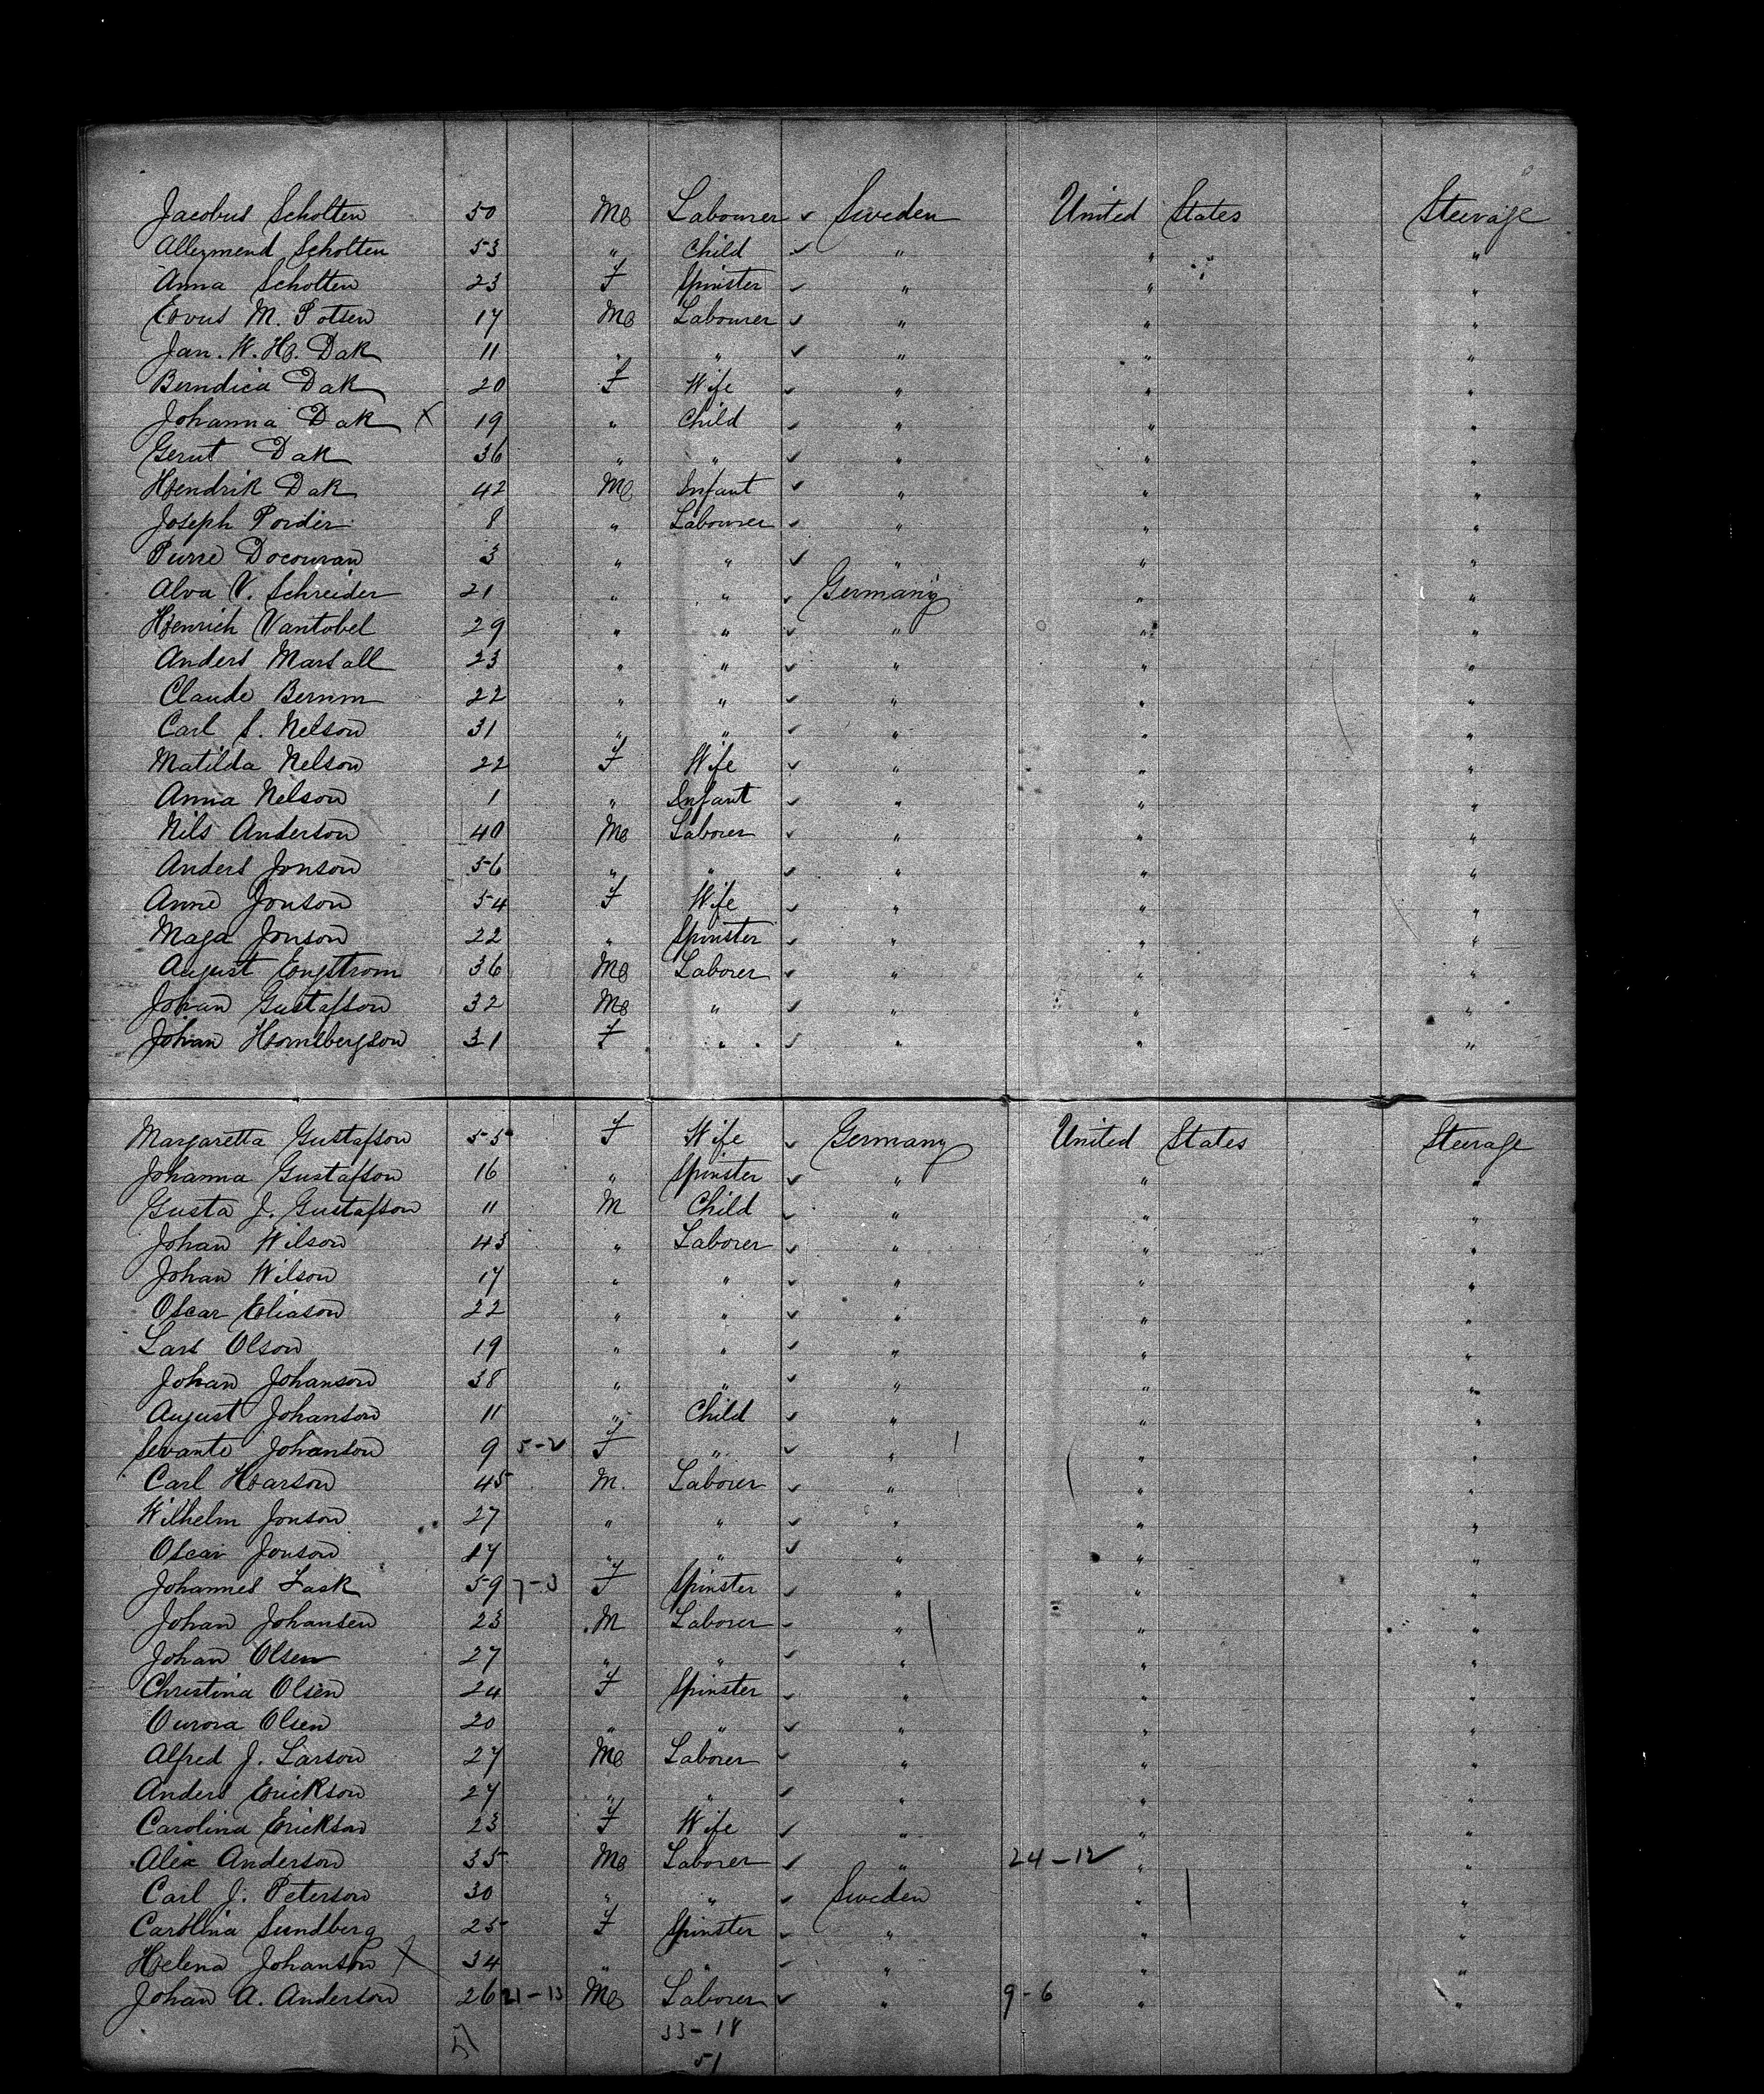 Jacobus Scholten 50 M Labourer ✓ Sweden United States Steerage
Scholten 53 " Child ✓ " " "
Anna Scholten 23 F Spinster ✓ " " "
M. Potsen 17 M Labourer ✓ " " "
Jan. W. H. Dak 11 " " ✓ " " "
Berndica Dak 20 F Wife ✓ " " "
Johanna Dak X 19 " Child ✓ " " "
Gerut Dak 36 " " ✓ " " "
Hendrik Dak 42 M Infant ✓ " " "
Joseph Pordir 8 " Labourer ✓ " " "
Purre Docouran 3 " " ✓ " " "
Alva V. Schreider 21 " " ✓ Germany " "
Henrich Vantobel 29 " " ✓ " " "
Anders Marsall 23 " " ✓ " " "
Claude Bernm 22 " " ✓ " " "
Carl S. Nelson 31 " " ✓ " " "
Matilda Nelson 22 F Wife ✓ " " "
Anna Nelson 1 " Infant ✓ " " "
Nils Anderson 40 M Laborer ✓ " " "
Anders Jonson 56 " " ✓ " " "
Anne Jonson 54 F Wife ✓ " " "
Maja Jonson 22 " Spinster ✓ " " "
August Engstrom 36 M Laborer ✓ " " "
Johan Gustafson 32 M " ✓ " " "
Johan Hornsbergson 31 F " ✓ " " "
Margaretta Gustafson 55 F Wife ✓ Germany United States Steerage
Johanna Gustafson 16 " Spinster ✓ " " "
Gusta J. Gustafson 11 M Child ✓ " " "
Johan Wilson 43 " Laborer ✓ " " "
Johan Wilson 17 " " ✓ " " "
Oscar Eliason 22 " " ✓ " " "
Lars Olson 19 " " ✓ " " "
Johan Johanson 38 " " ✓ " " "
August Johanson 11 " Child ✓ " " "
Sevante Johanson 9 5-2 F " ✓ " " "
Carl Harson 45 M. Laborer ✓ " " "
Wilhelm Jonson 27 " " ✓ " " "
Oscar Jonson 17 " " ✓ " " "
Johannes Fask 59 7-3 F Spinster ✓ " " "
Johan Johansen 23 M Laborer ✓ " " "
Johan Olsen 27 " " ✓ " " "
Christina Olsen 24 F Spinster ✓ " " "
Ourora Olsen 20 " " ✓ " " "
Alfred J. Larson 27 M Laborer ✓ " " "
Anders Erickson 27 " " ✓ " " "
Carolina Erickson 23 F Wife ✓ " " "
Alex Anderson 35 M Laborer ✓ " 24-12 " "
Carl J. Peterson 30 " " ✓ Sweden " "
Carolina Sundberg 25 F Spinster ✓ " " "
Helena Johanson X 34 " " ✓ " " "
Johan A. Anderson 26 21-13 M Laborer ✓ " 9-6 " "
51 33-18
51